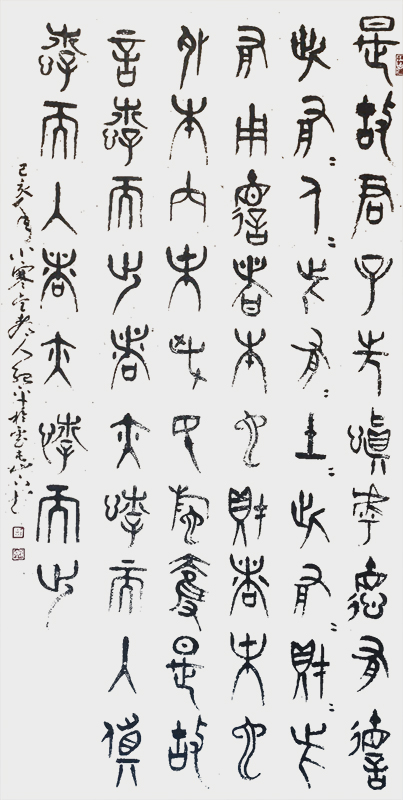 是故君子先慎乎德有德
此有〻人〻此有〻土〻此有〻財〻此
有用德者本也財者末也
外本內末爭民施奪是故
言悖而出者亦悖而入貨
悖而入者亦悖而出
己亥年小寒老人